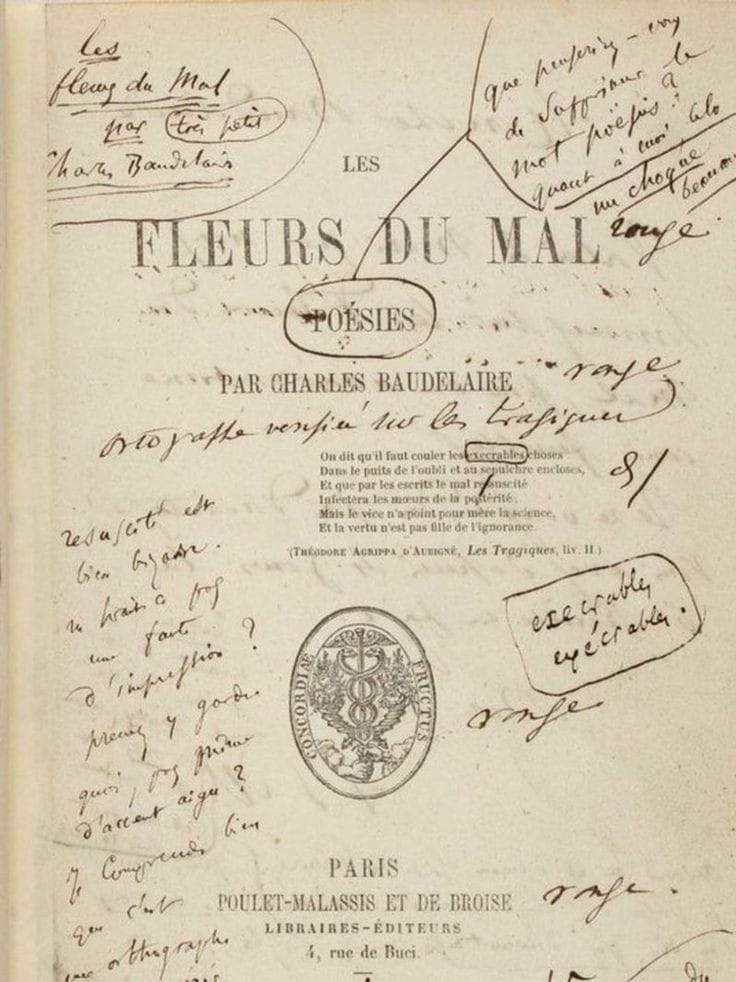 les
fleurs du Mal
par très petit
Charles Baudelaire
que penseriez-vous
de supprimer le
mot poësies ?
quant à moi cela
me choque
beaucoup
LES
FLEURS DU MAL
rouge.
POÉSIES
PAR CHARLES BAUDELAIRE
rouge
ortographe verifiée sur les tragiques
On dit qu'il faut couler les execrables choses
Dans le puits de l'oubli et au sepulchre encloses,
Et que par les escrits le mal resuscité
Infectera les mœurs de la postérité ;
Mais le vice n'a point pour mère la science,
Et la vertu n'est pas fille de l'ignorance
(THÉODORE AGRIPPA D'AUBIGNÉ, Les Tragiques, liv. II)
resuscité est
bien bizarre.
ne serait-ce pas
une faute
d'impression ?
prenez y garde
quoi, pas même
d'accent aigu ?
Je comprends bien
que c'est
une orthographe
execrables
exécrables.
CONCORDIÆ FRUCTUS
rouge
PARIS
POULET-MALASSIS ET DE BROISE
rouge.
LIBRAIRES-ÉDITEURS
4, rue de Buci.